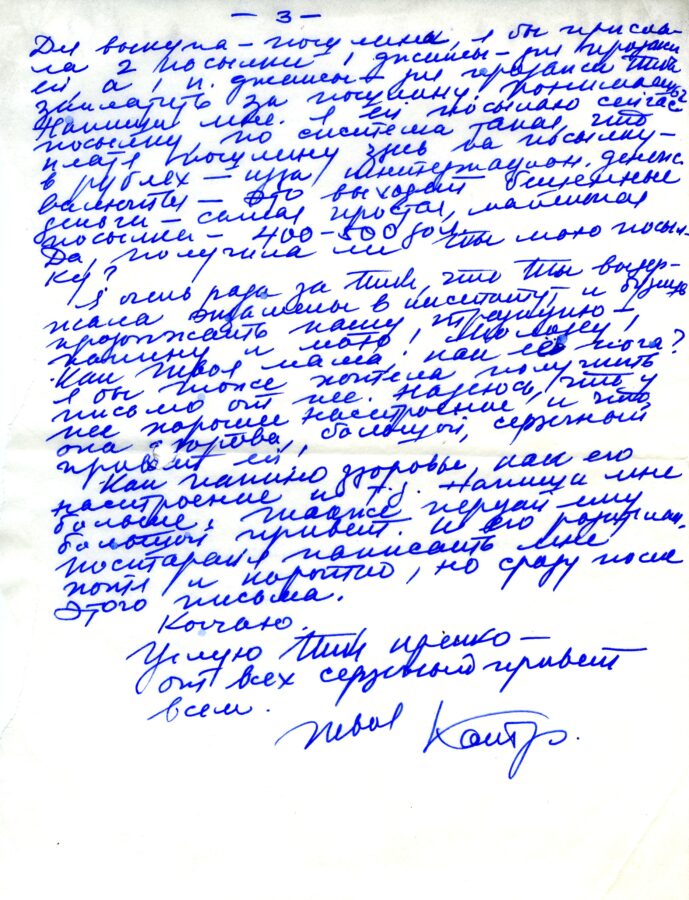 — 3 —
Для выкупа – пошлина, я бы присла-
ла 2 посылки 1 джинсы – для продажи
ей, а 1 п. джинсы – для продажи Тебе
заплатить за пошлину. Понимаешь?
Напиши мне. Я ей посылаю сейчас
посылку, но система такая, что
платя пошлину здесь на посылку –
в рублях – идя интернацион. денежн.
валюты – это выходит бешенные
деньги – самая простая, маленькая
посылка – 400-500 дол.
Да, получила ли Ты мою посыл-
ку?
Я очень рада за Тебя, что Ты выдер-
жала экзамены в институт, и будешь
продолжать нашу традицию –
папину и мою! Молодец!
Как Твоя мама. как её нога?
Я бы тоже хотела получить
письмо от нее. Надеюсь, что у
нее хорошее настроение, и что
она здорова, большой, сердечный
привет ей.
Как папино здоровье, как его
настроение и т.д. Напиши мне
больше, также передай ему
большой привет. и его
постарайся написать мне
хотя и коротко, но сразу после
этого письма.
Кончаю.
Целую Тебя крепко –
от всех сердечный привет
всем.
Твоя